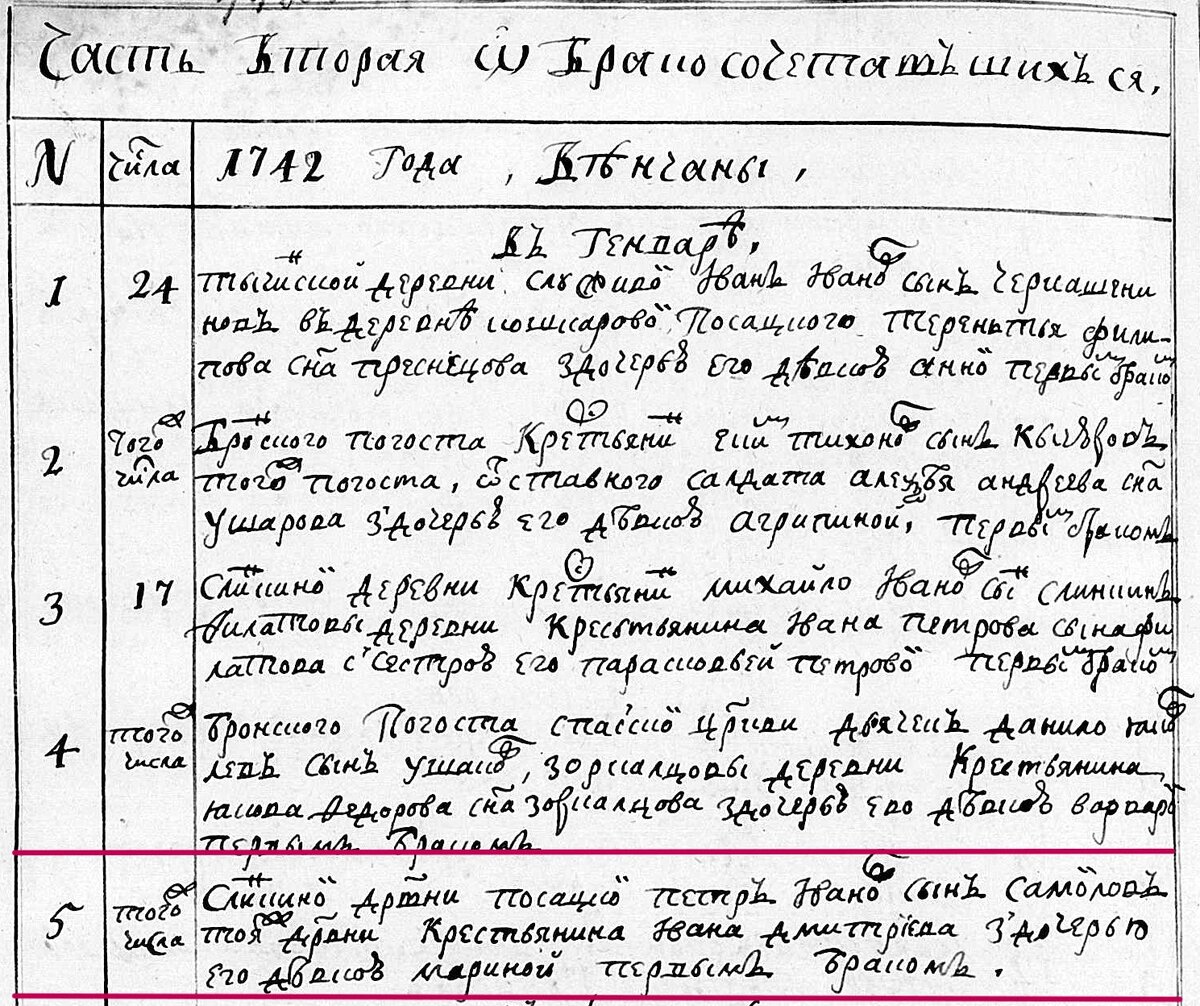 Часть Вторая ѿ Бракосочетавъшихъся.
N числа 1742 Года, Вѣнчаны,
Въ Генварѣ.
1 24 деревни Иванъ Иванов сынъ Черкашени
новъ въ деревнѣ кошкаровой Посацкого Терентья фили-
пова сна преснецова здочерью его дѣвкою анной первым браком
2 того числа погоста Крестьянин тихонов сынъ
того погоста, ѿставного салдата алексѣя андреева сна
ушарова здочерью его дѣвкою агрипиной, первым бракомъ
3 17 деревни Крестьянин михайло Иванов сын слинкинъ
филатовы деревни Крестьянина Ивана Петрова сына фи
латова с сестрою его парасковьей петровой первым браком
4 того числа Бронского Погоста спасской цркви дьячекъ данило яков
левъ сынъ ушаков, зоркалцовы деревни Крестьянина
якова Федорова сна зоркалцова здочерью его дѣвкою варварой
первымъ бракомъ
5 того числа Слинкиной дрвни посацкой петръ Иванов сынъ самойловъ
тоя дрвни Крестьянина Ивана дмитриева здочерью
его дѣвкою мариной первымъ бракомъ.